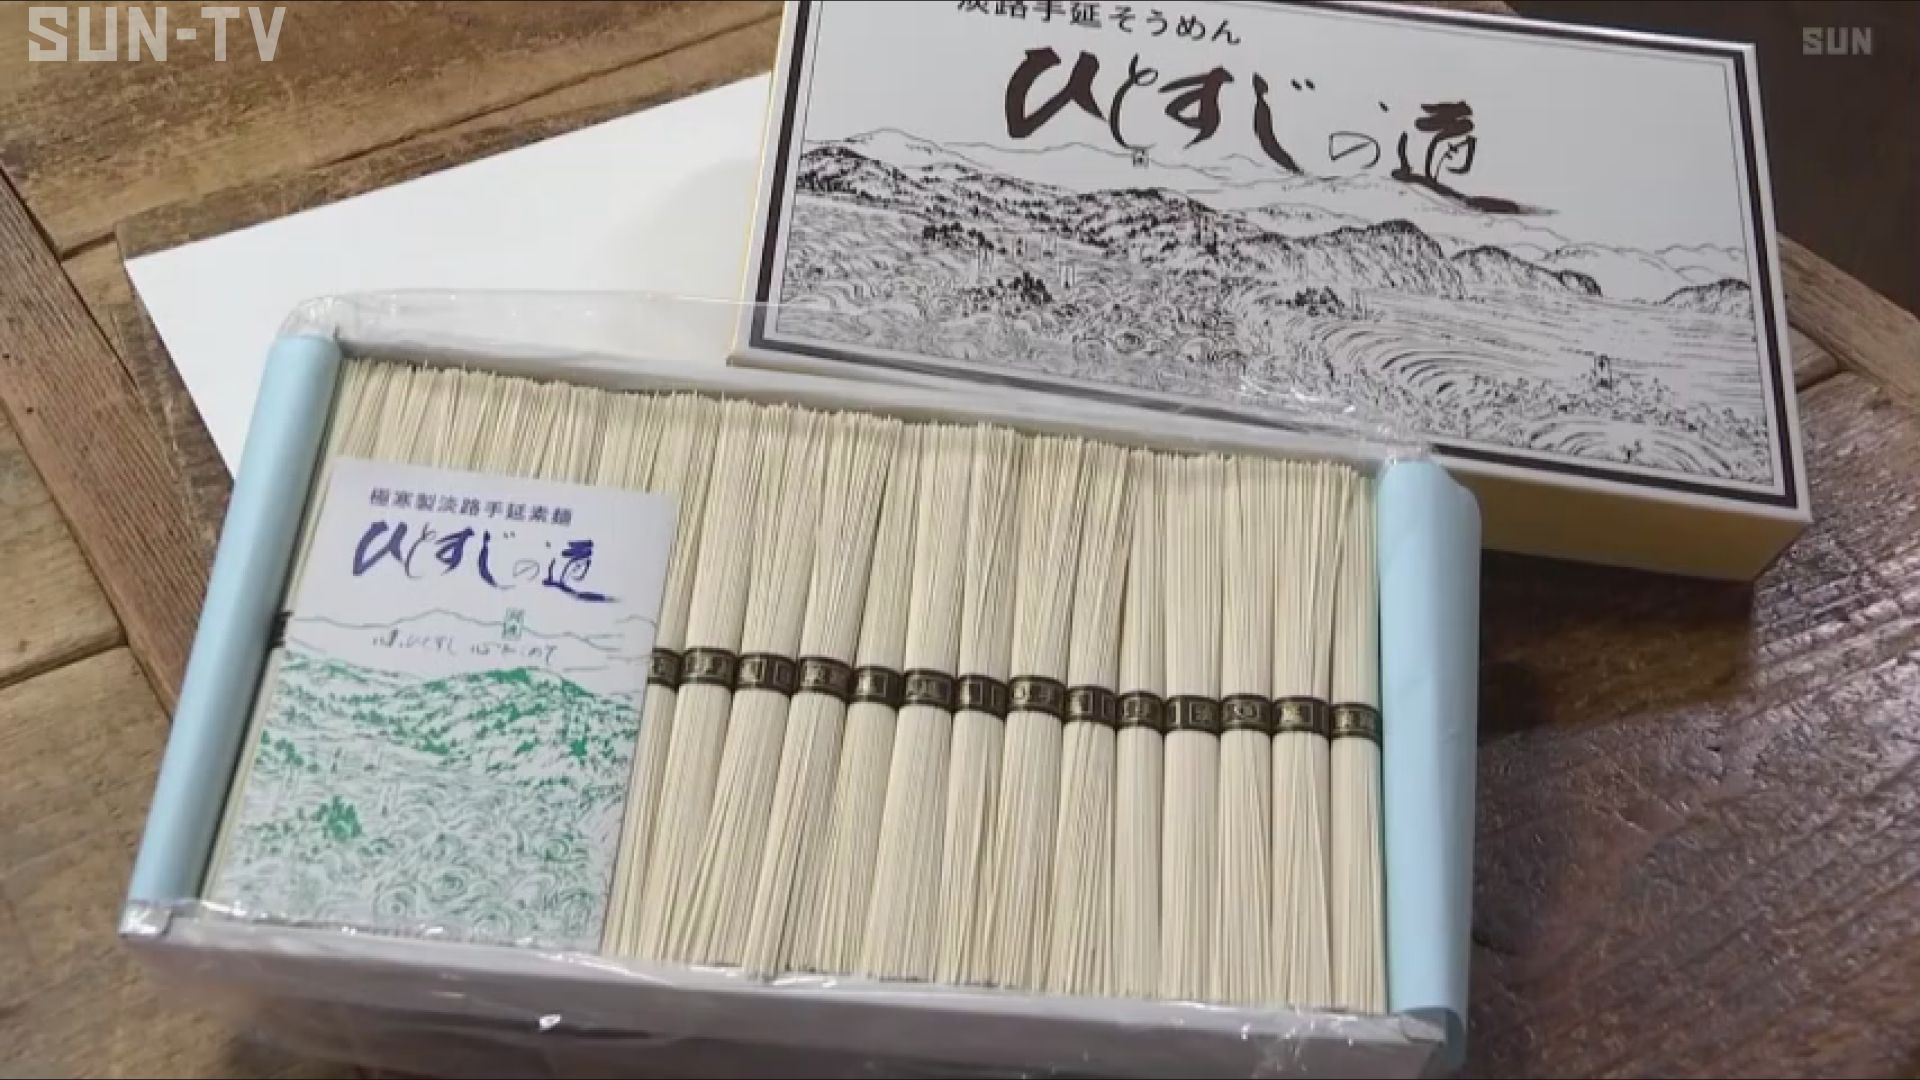 SUN-TV
SUN
淡路手延そうめん
ひとすじの道
極寒製淡路手延素麺
ひとすじの道